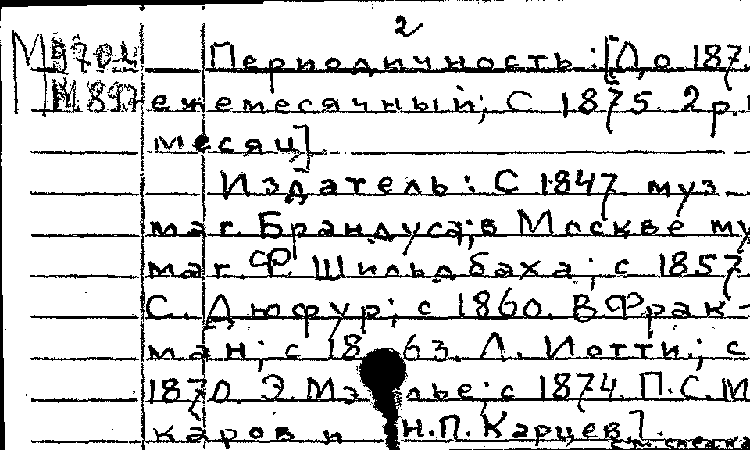 2
Периодичность: [До 187
ежемесячный; С 1875 2 р.
месяц]
Издатель: С 1847 муз.
маг. Брандуса; в Москве му
маг. Ф Шильдбаха; с 1857
С. Дюфур; с 1860. В Фрак-
ман; с 1863. Л. Иотти; с
1870. Э. Мэ лье; с 1874. П. С. М
каров и Н. П. Карцев].